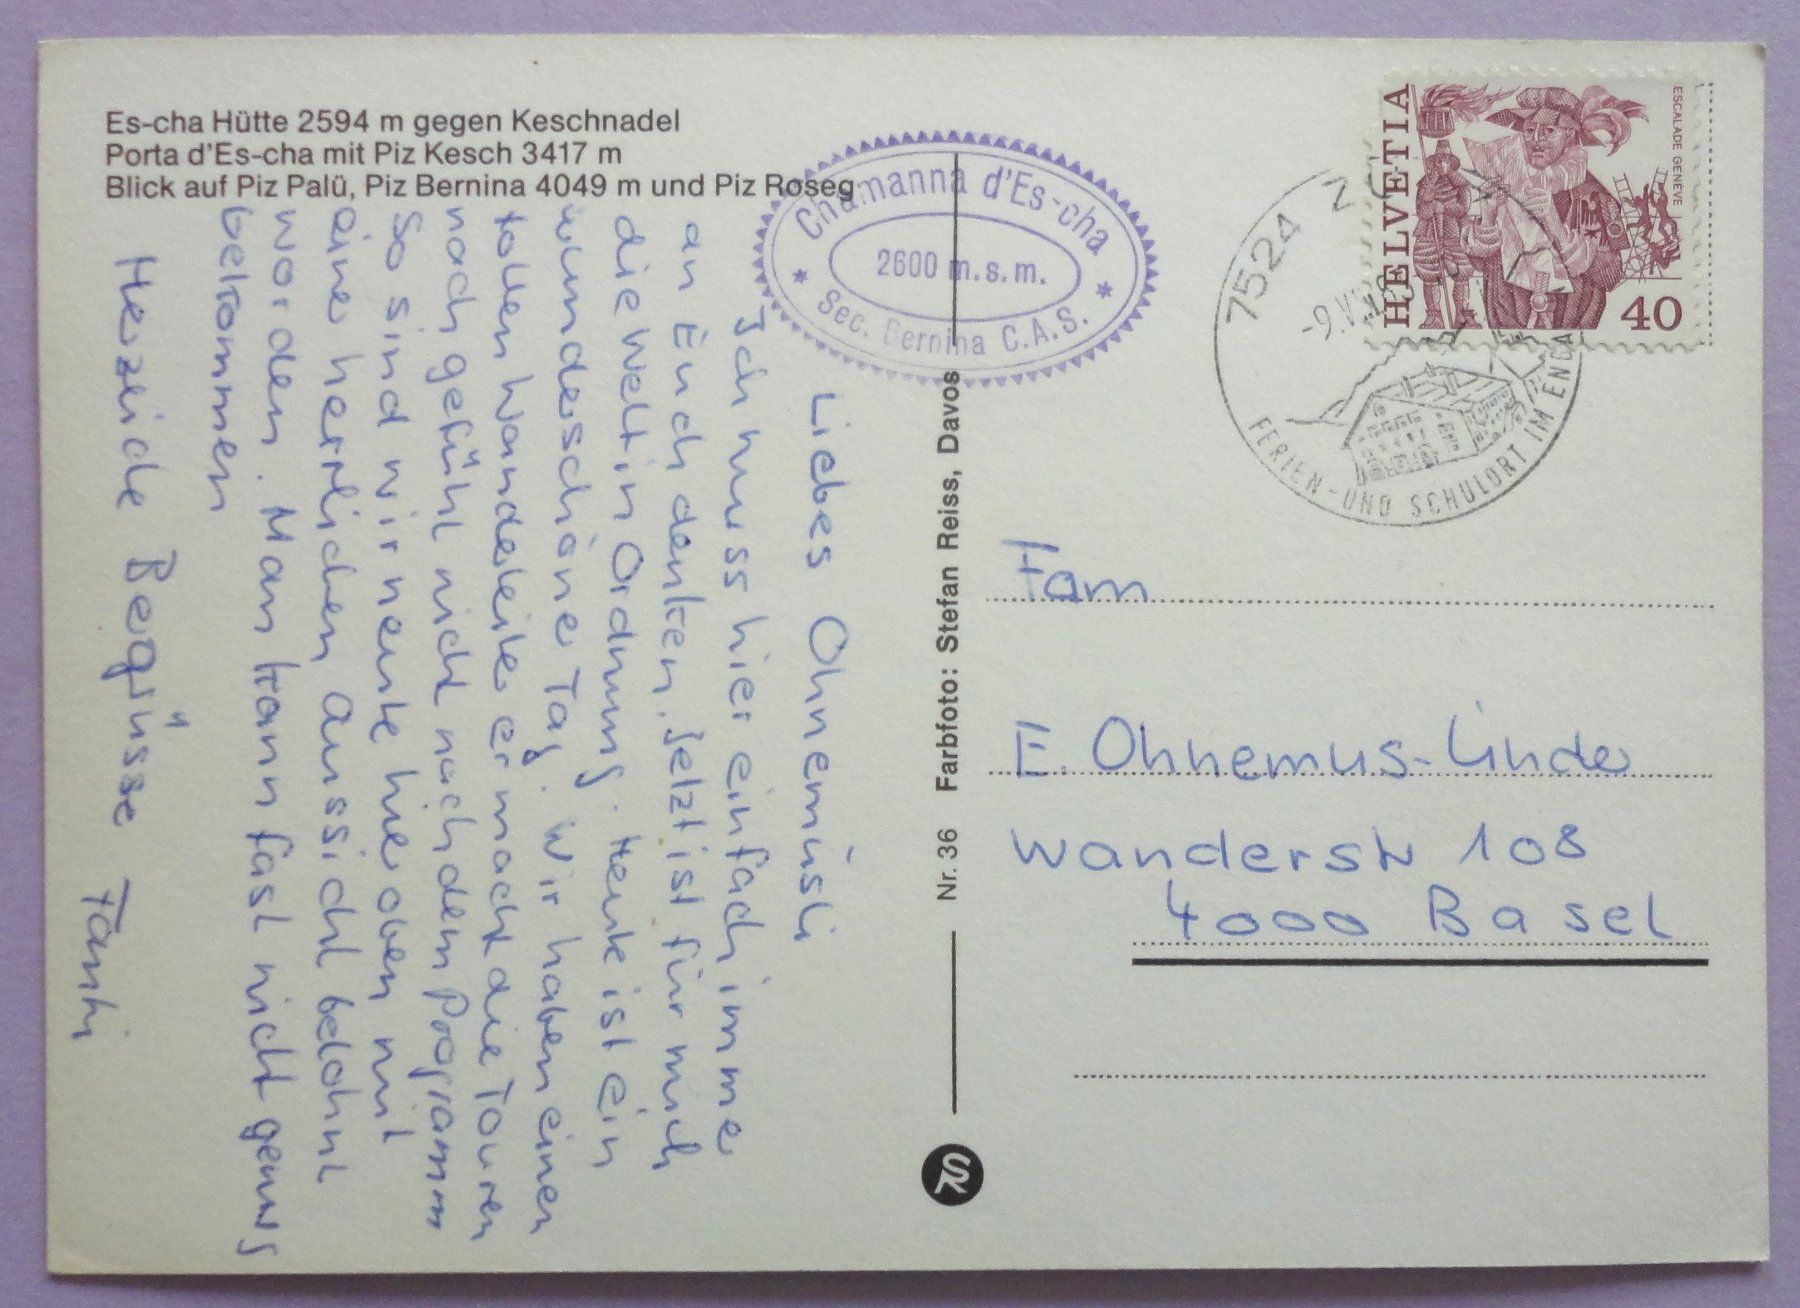 Es-cha Hütte 2594 m gegen Keschnadel
Porta d'Es-cha mit Piz Kesch 3417 m
Blick auf Piz Palü, Piz Bernina 4049 m und Piz Roseg
Chamanna d'Es-cha
2600 m.s.m.
Sec. Bernina C.A.S.
HELVETIA
ESCALADE GENÈVE
40
7524
FERIEN-UND SCHULORT IM ENGA
Liebes Ohnemüsli
Ich muss hier einfach immer
an Euch denken. Jetzt ist für mich
die Welt in Ordnung. Heute ist ein
wunderschöner Tag. Wir haben einen
tollen Wanderleiter er macht die Touren
nach gefühl nicht nach dem Programm
So sind wir heute hier oben mit
einer herrlichen Aussicht belohnt
worden. Man kann fast nicht genug
bekommen
Herzliche Begrüsse
Nr. 36 Farbfoto: Stefan Reiss, Davos
Fam
E. Ohnemus-Linder
Wanderstr 108
4000 Basel